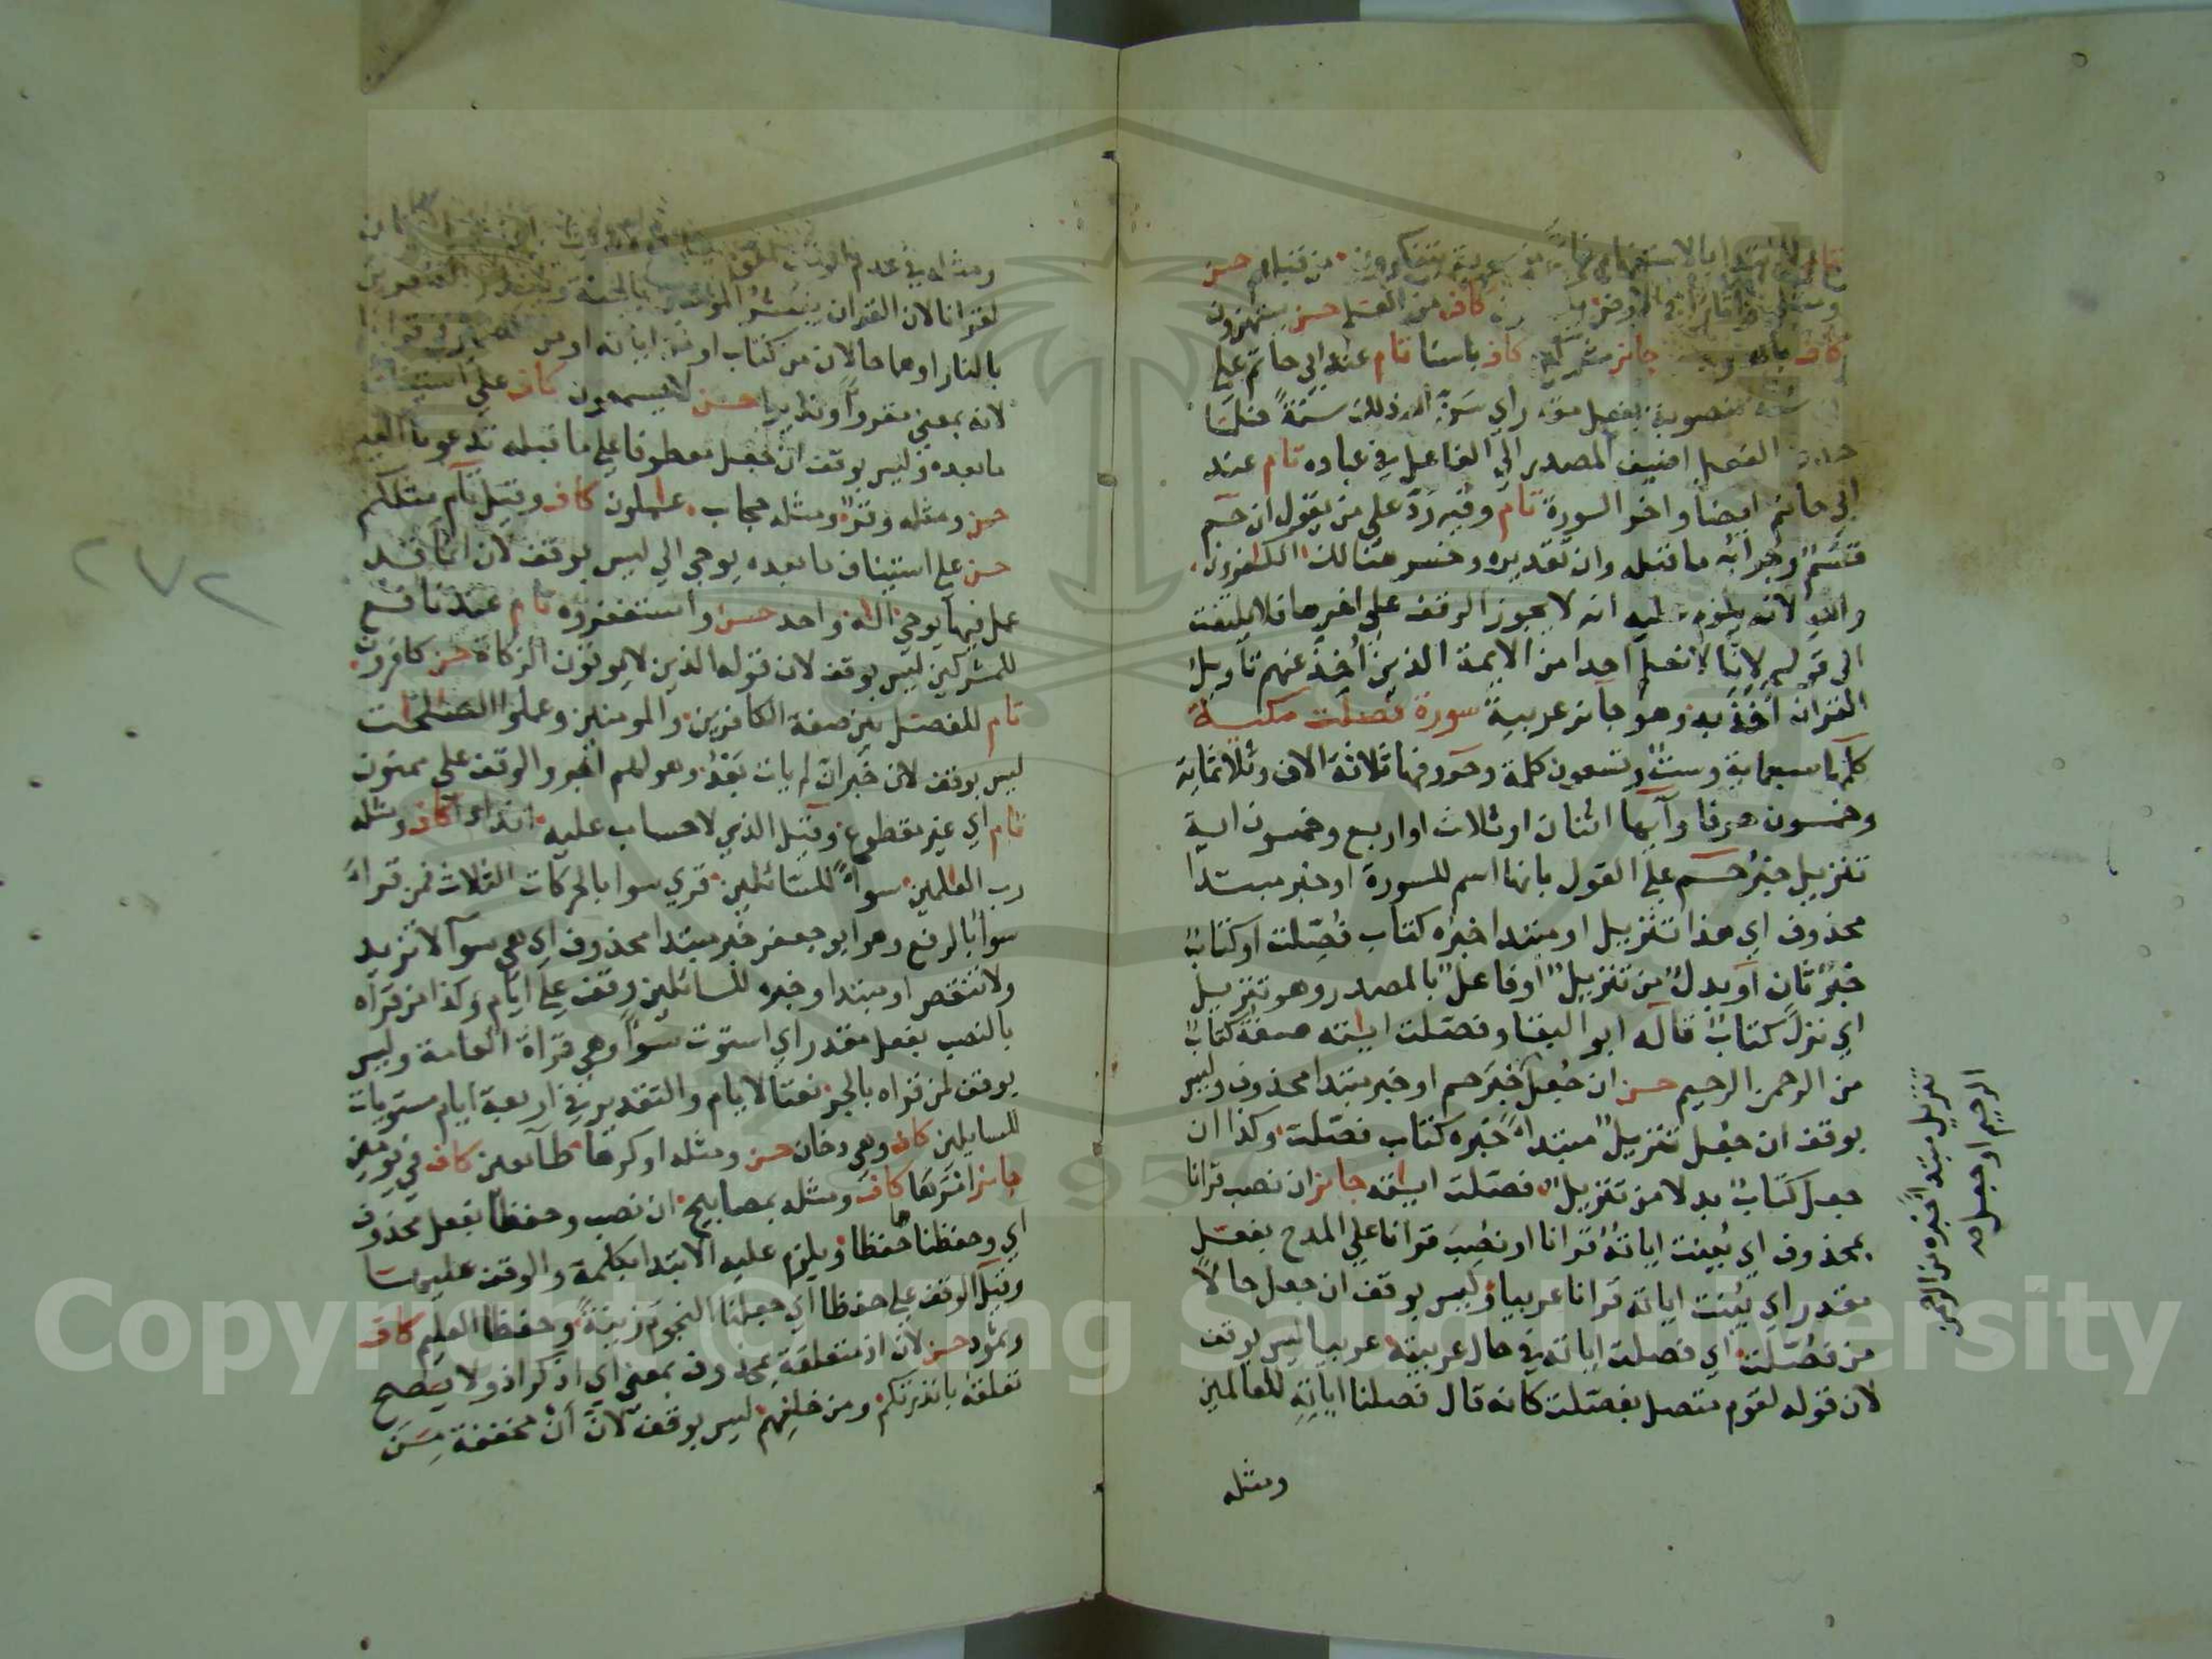 تام للابتداء بالاستفهام من قبلهم حسن
كاف من العلم حسن يستهزؤن
كاف جائز كاف باسنا تام عند ابي حاتم علي
منصوبة بفعل مقدر اي سن الله ذلك سنة فلما
حذف الفعل اضيف المصدر الي الفاعل في عباده تام عند
ابي حاتم ايضا واخر السورة تام وفيه رد علي من يقول ان حم
قسم وجوابه ما قبله وان تقديره وخسر هنالك الكفرون
والله لانه يلزم عليه انه لا يجوز الوقف علي اخرها فلا يلتفت
الي قولهم لانا لا نعلم احدا من الايمة الذين اخذ عنهم تاويل
القران اخذ به وهو جائز عربية سورة فصلت مكية
كلمها سبعماية وست وتسعون كلمة وحروفها ثلاثة الاف وثلاثماية
وخمسون حرفا وآيها اثنان او ثلاث او اربع وخمسون اية
تنزيل خبر حم علي القول بانها اسم للسورة او خبر مبتدا
محذوف اي هذا تنزيل او مبتدا خبره كتاب فصلت او كتاب
خبر ثان او بدل من تنزيل او فاعل بالمصدر وهو تنزيل
اي نزل كتاب قاله ابو البقا وفصلت ايته صفة كتاب
من الرحمن الرحيم حسن ان جعل خبر حم او خبر مبتدا محذوف وليس
بوقف ان جعل تنزيل مبتدا خبره كتاب فصلت وكذا ان
جعل كتاب بدلا من تنزيل فصلت ايته جائز ان نصب قرانا
بمحذوف اي بينت اياته قرانا او نصب قرانا علي المدح بفعل
مقدر اي بينت اياته قرانا عربيا وليس بوقف ان جعل حالا
من فصلت اي فصلت اياته في حال عربيته عربيا ليس بوقف
لان قوله لقوم متصل بفصلت كانه قال فصلنا اياته للعالمين
ومثله
تنزيل مبتدا خبره من الرحمن
الرحيم او جعل
ومثله في عدم الوقف
لقرانا لان القران يبشر المؤمنين بالجنة وينذر الكافرين
بالنار او هما حالان من كتاب او من اياته او من الضمير في قرانا
لانه بمعني مقروا ونذيرا حسن لا يسمعون كاف علي استيناف
ما بعده وليس بوقف ان جعل معطوفا علي ما قبله تدعونا اليه
حسن ومثله وقر ومثله حجاب عملون كاف وقيل تام مثلكم
حسن علي استيناف ما بعده يوحي الي ليس بوقف لان انما قد
عمل فيها يوحي اله واحد حسن واستغفروه تام عند نافع
للمشركين ليس بوقف لان قوله الذين لا يوتون الزكاة حسن كافرون
تام للفصل بين صفة الكافرين والمومنين وعملوا الصلحت
ليس بوقف لان خبر ان لم يات بعد وهو لهم اجر والوقف علي ممنون
تام اي غير مقطوع وقيل الذي لا حساب عليه اندادا كاف ومثله
رب العلمين سواء للسائلين قري سوا بالحركات الثلاث فمن قراء
سواء بالرفع وهو ابو جعفر خبر مبتدا محذوف اي هي سوآ لا تزيد
ولا تنقص او مبتدا وخبره للسائلين وقف علي ايام وكذا من قراه
بالنصب بفعل مقدر اي استوت سواء وهي قراة العامة وليس
بوقف لمن قراه بالجر نعتا لايام والتقدير في اربعة ايام مستويات
للسايلين كاف وهي دخان حسن ومثله او كرها طائعين كاف في يومين
جائز امرها كاف ومثله بمصابيح ان نصب وحفظا بفعل محذوف
اي وحفظناها حفظا ويلزم عليه الابتدا بكلمة والوقف عليها
وقيل الوقف علي حفظا اي جعلنا النجوم زينة وحفظا العليم كاف
وثمود حسن لان اذ متعلقة بمحذوف بمعني اي اذكر اذ ولا يصح
تعلقه بانذرتكم ومن خلفهم ليس بوقف لان ان مخففة من
٢٧٢